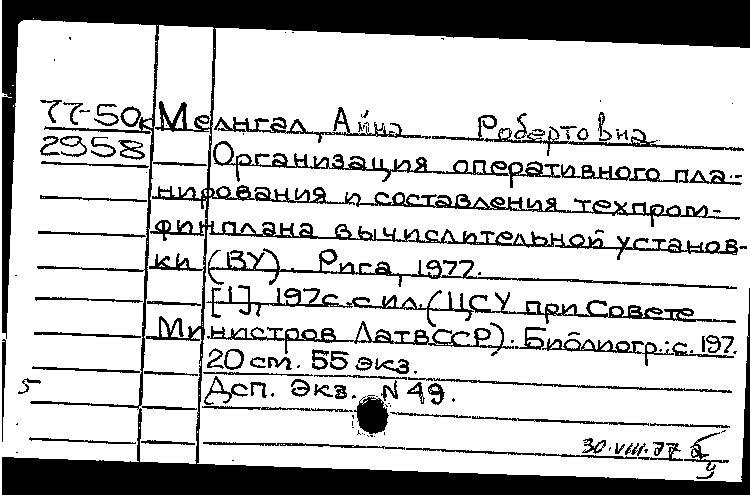 77-50к Мелнгал, Айна Робертовна
2958 Организация оперативного пла-
нирования и составления техпром-
финплана вычислительной установ-
ки (ВУ). Рига, 1977.
[1], 197с. с ил. (ЦСУ при Совете
Министров ЛатвССР). Библиогр.: с. 197.
20 cm. 55 экз.
5 Дсп. Экз. N 49.
30.VIII.77